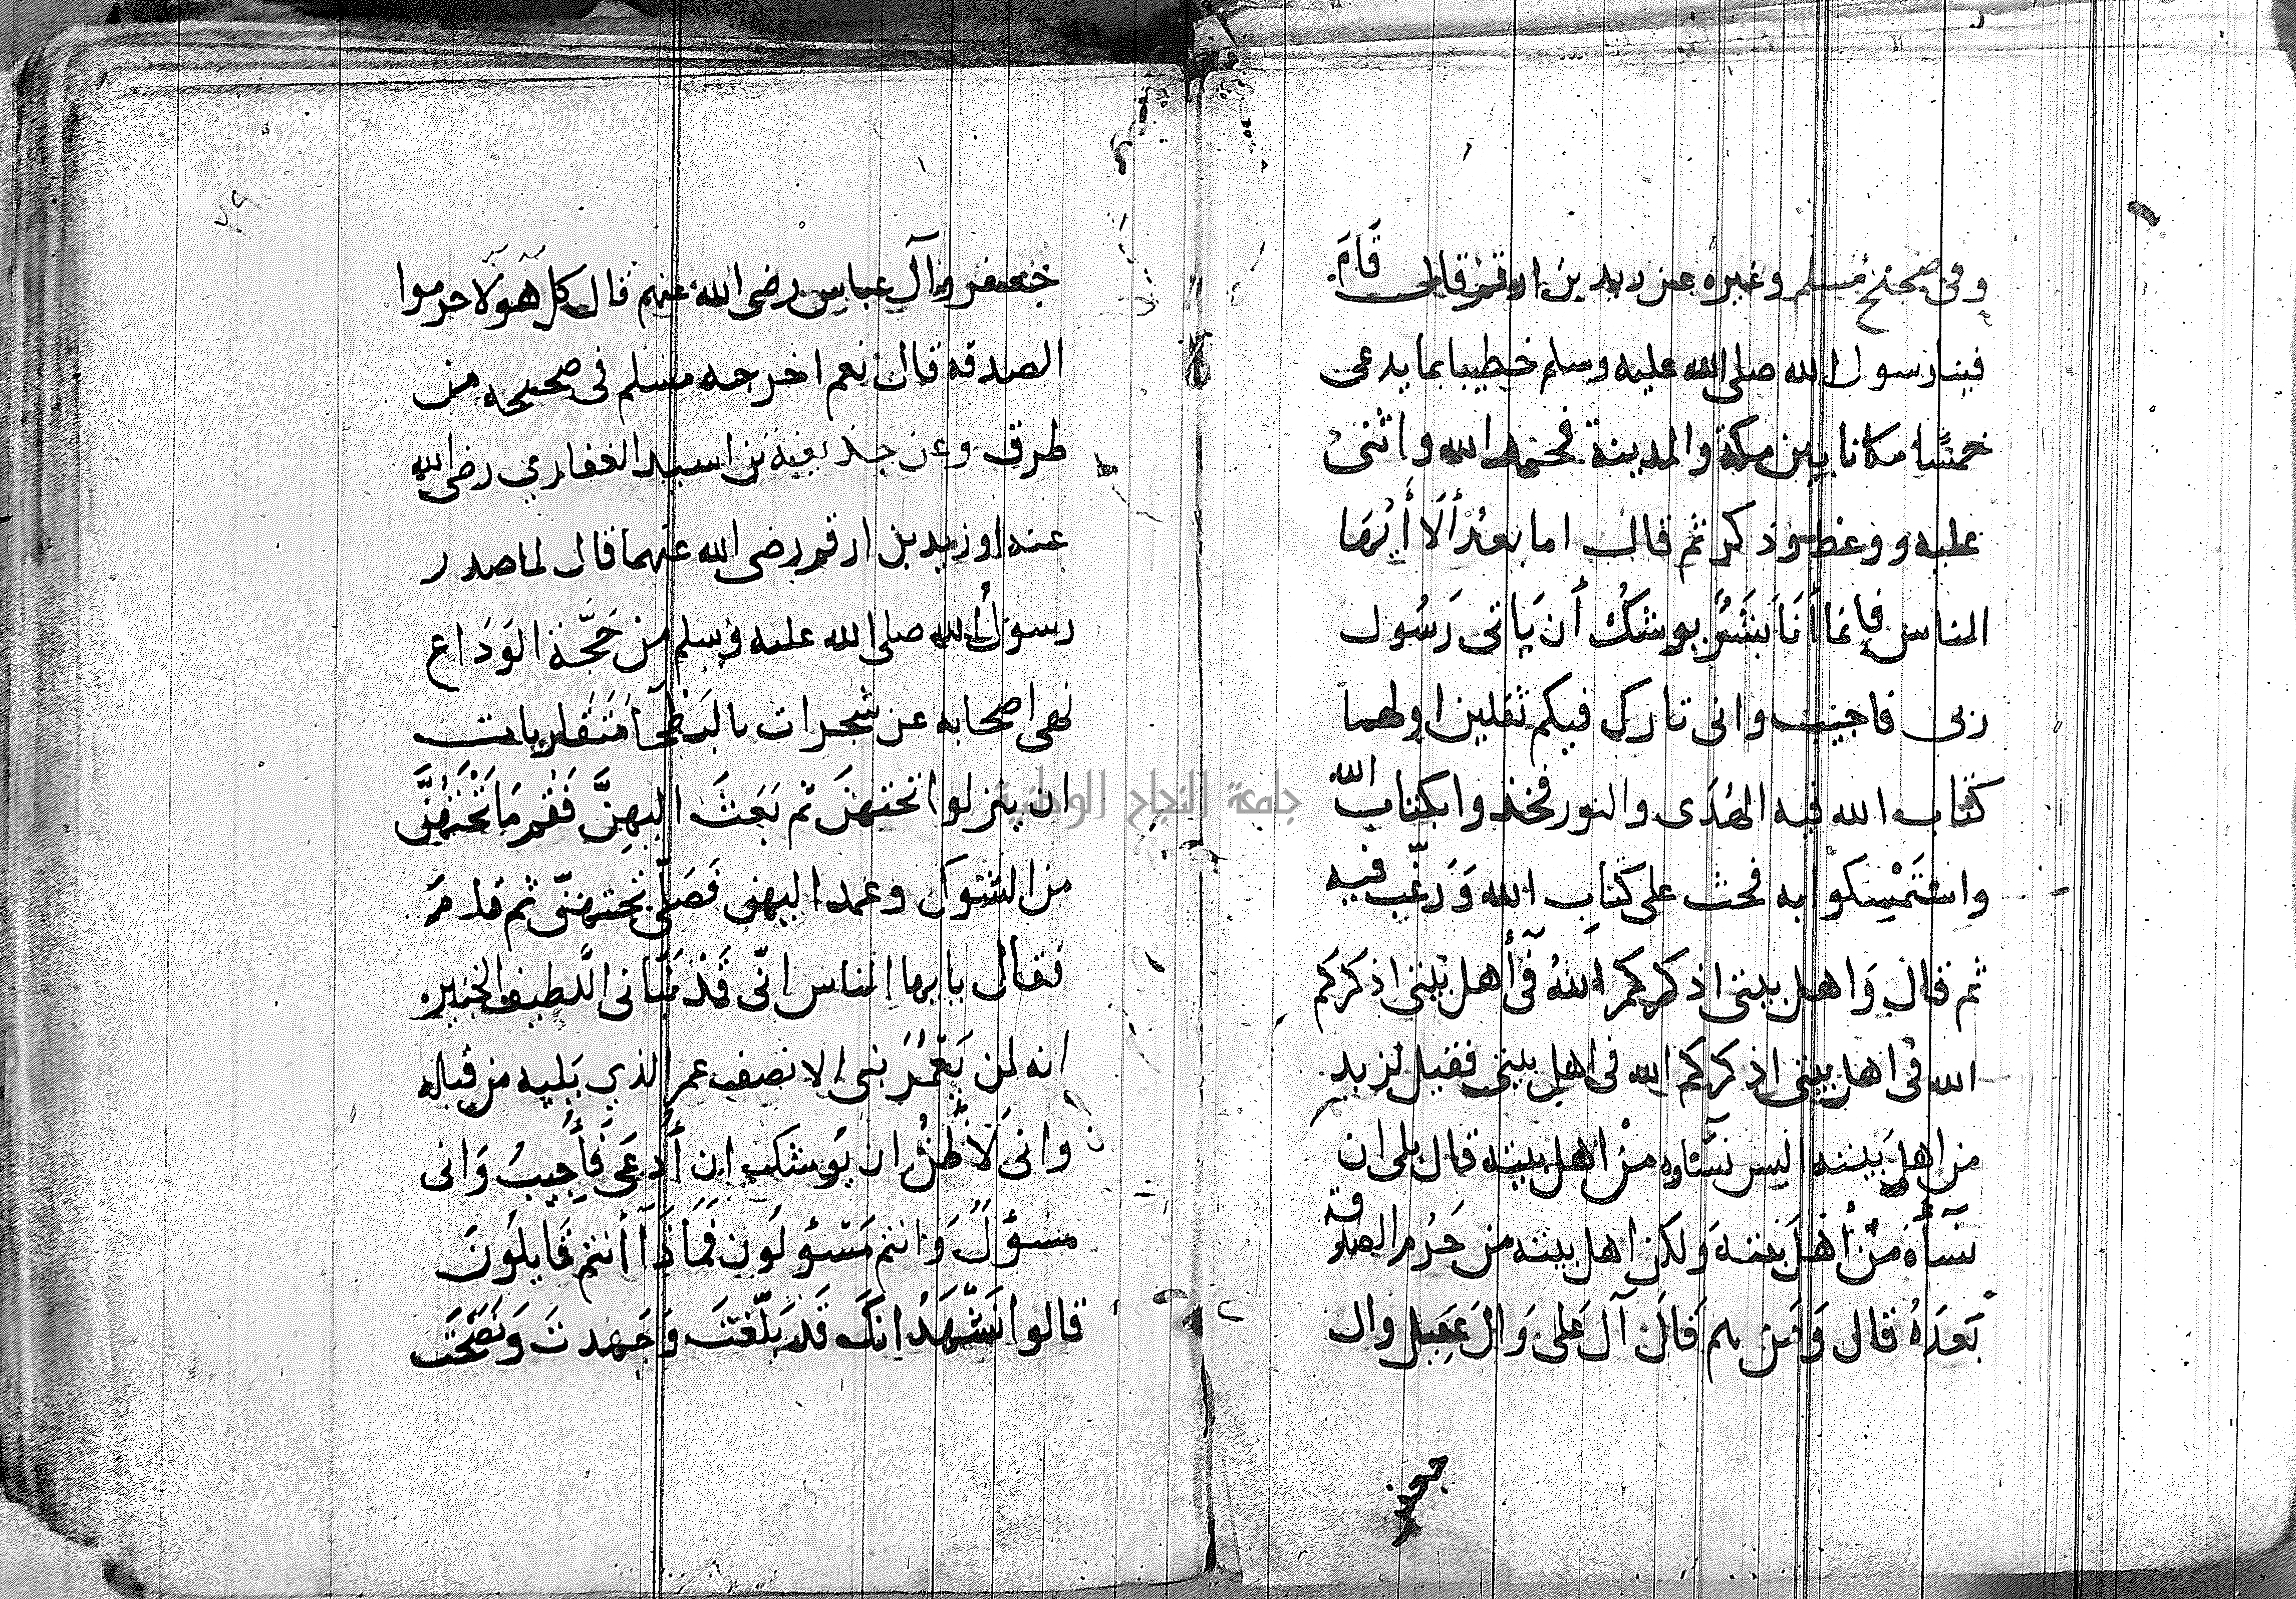 وفى صحيح مسلم وغيره عن زيد بن ارقم قال قَامَ
فينا رسول الله صلى الله عليه وسلم خطيبا بما يدعى
خمسًا مكانا بين مكة والمدينة فحمد الله واثنى
عليه ووعظ وذكر ثم قال اما بعدُ ألَا أيُّهَا
الناس فإنما أَنَا بَشَرٌ يوشكُ أَن يَاتى رَسُول
ربى فاجيب وانى تارك فيكم ثقلين اولهما
كتاب الله فيه الهُدَى والنور فخذوا بكتاب الله
واسْتَمْسِكوا به فحث على كتابِ الله وَرَغَّب فيه
ثم قال وَاهل بيتى اذكركم اللهُ فى أهل بيتى اذكركم
الله فى اهل بيتى اذكركم الله فى اهل بيتى فقيل لزيد
من اهل بيته اليس نسَآوه منْ اهل بيته قال بلى ان
نسآَه منْ أهْل بيته وَلكن اهل بيته من حَرُم الصدقة
بَعدَهُ قال وَمَن هم قالَ آل عَلى وَالَ عَقِيل وال
جعفر
جَعفر وآل عباس رضى الله عنهم قال كل هَولآ حرموا
الصدقه قال نعم اخرجه مسلم فى صحيحه من
طرق وعن حذيفة بن اسيد الغفاري رضى الله
عنه او زيد بن ارقم رضى الله عنهما قال لما صدر
رسولُ الله صلى الله عليه وسلم من حَجَّة الوَدَاع
نهى اصحابه عن شجرات بالبَطْحَآ مُتَقَاربات
ان ينزلوا تحتهنَ ثم بَعَثَ اليهِنَّ فَقُم مَا تَحْتَهُنَّ
من الشوك وعمد اليهن فَصَلَّى تحتهنّ ثم قامَ
فقال يا ايها الناس انّى قَدْ نَبَّانى اللَّطيف الخبير
انه لن يَعْمُرَ نبى الا نصف عمر الذي يَليه من قبله
وانى لَاَظُنُّ ان يُوشك ان أُدعَى فَأُجِيبُ وَانى
مسؤلٌ وَانتم مَسْؤلَون فَمَاذَآ أنتم قَايلُونَ
قالوا نَشْهَدُ انكَ قَد بَلّغتَ وَجَهدتَ وَنَصَحْتَ